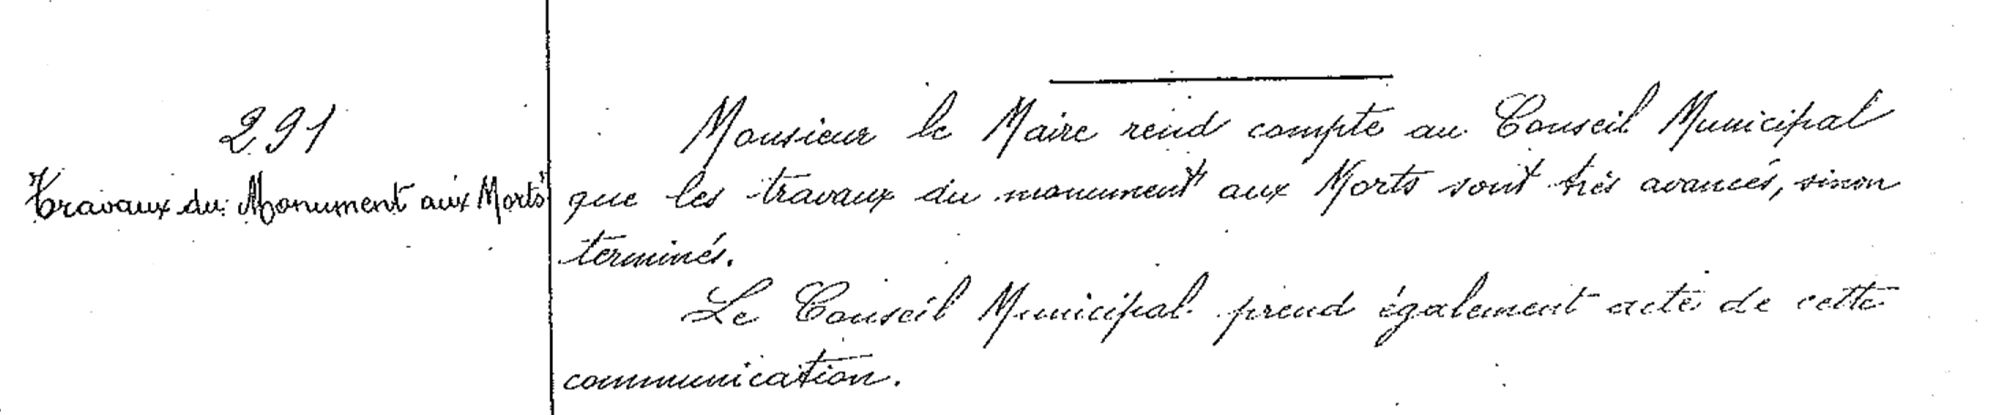 291
Travaux du Monument aux Morts
Monsieur le Maire rend compte au Conseil Municipal
que les travaux du monument aux Morts sont très avancés, sinon
terminés.
Le Conseil Municipal prend également acte de cette
communication.